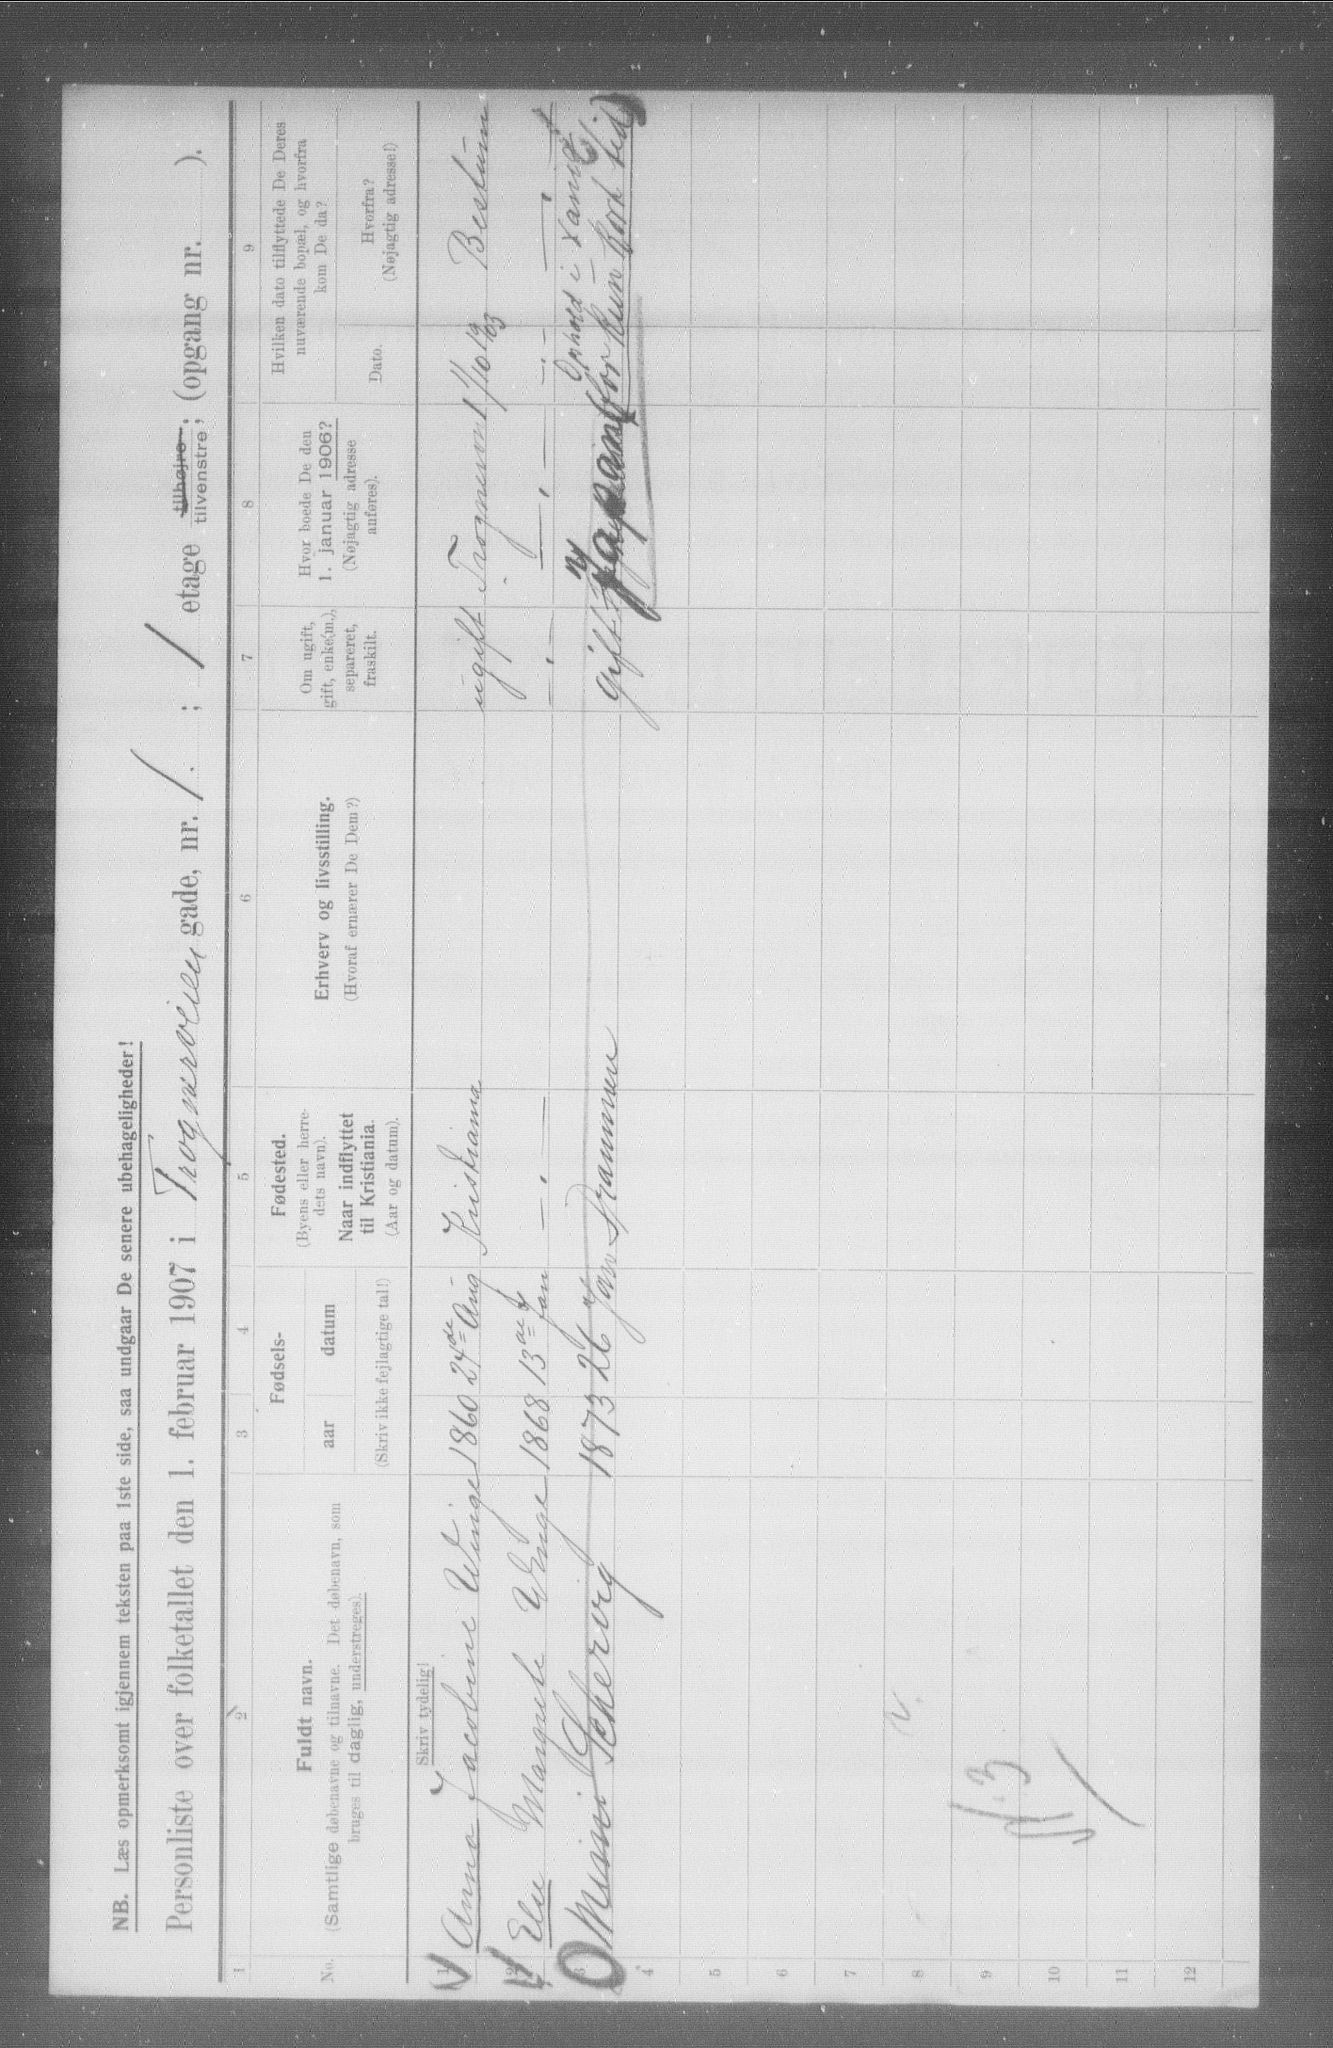 NB. Læs opmerksomt igjennem teksten paa 1ste side, saa undgaar De senere ubehageligheder!
Personliste over folketallet den 1. februar 1907 i Frognerveien gade, nr. 1. ; 1 etage tilhøjre, tilvenstre, ; (opgang nr. ).
1 2 3 4 5 6 7 8 9
No.
Fuldt navn.
(Samtlige døbenavne og tilnavne. Det døbenavn, som
bruges til daglig, understreges).
Fødsels-
aar datum
(Skriv ikke fejlagtige tal!)
Fødested.
(Byens eller herre-
dets navn).
Naar indflyttet
til Kristiania.
(Aar og datum).
Erhverv og livsstilling.
(Hvoraf ernærer De Dem?)
Om ugift,
gift, enke(m.),
separeret,
fraskilt.
Hvor boede De den
1. januar 1906?
(Nøjagtig adresse
anføres).
Hvilken dato tilflyttede De Deres
nuværende bopæl, og hvorfra
kom De da?
Dato.
Hvorfra?
(Nøjagtig adresse!)
Skriv tydelig!
1 Anna Jacobine Winge 1860 24de Aug Kristiania ugift Frognerv 1 1/10 1903 Bestum
2 Elie Margrete Winge 1868 13de Jan — . — — . — — . — — . — — . —
Ophold i
3 Mimi Schervig 1873 26 Jan Drammen gift Japan (for kun kort tid)
4
5
6
7
8
9
10
11
12